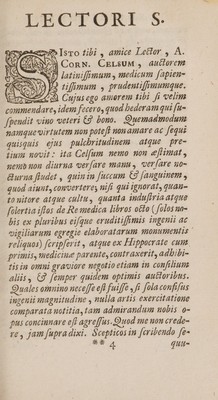 LECTORI S.
SISTO tibi, amice Lector, A.
CORN. CELSUM, auctorem
latinissimum, medicum sapien-
tissimum, prudentissimumque.
Cujus ego amorem tibi si velim
commendare, idem fecero, quod hederam qui su-
spendit vino veteri & bono. Quemadmodum
namque virtutem non potest non amare ac sequi
quisquis ejus pulchritudinem atque pre-
tium novit: ita Celsum nemo non æstimat,
nemo non diurna versare manu, versare no-
cturna studet, quin in succum & sanguinem,
quod aiunt, convertere, nisi qui ignorat, quan-
to nitore atque cultu, quanta industria atque
solertia istos de Re medica libros octo (solos no-
bis ex pluribus ejusque eruditissimis ingenii ac
vigiliarum egregie elaboratarum monumentis
reliquos) scripserit, atque ex Hippocrate cum
primis, medicinæ parente, contraxerit, adhibi-
tis in omni graviore negotio etiam in consilium
aliis, & semper quidem optimis auctoribus.
Quales omnino necesse est fuisse, si sola confisus
ingenii magnitudine, nulla artis exercitatione
comparata notitia, tam admirandum nobis o-
pus concinnare est agressus. Quod me non crede-
re, jam supra dixi. Scepticos in scribendo se-
** 4 quu-